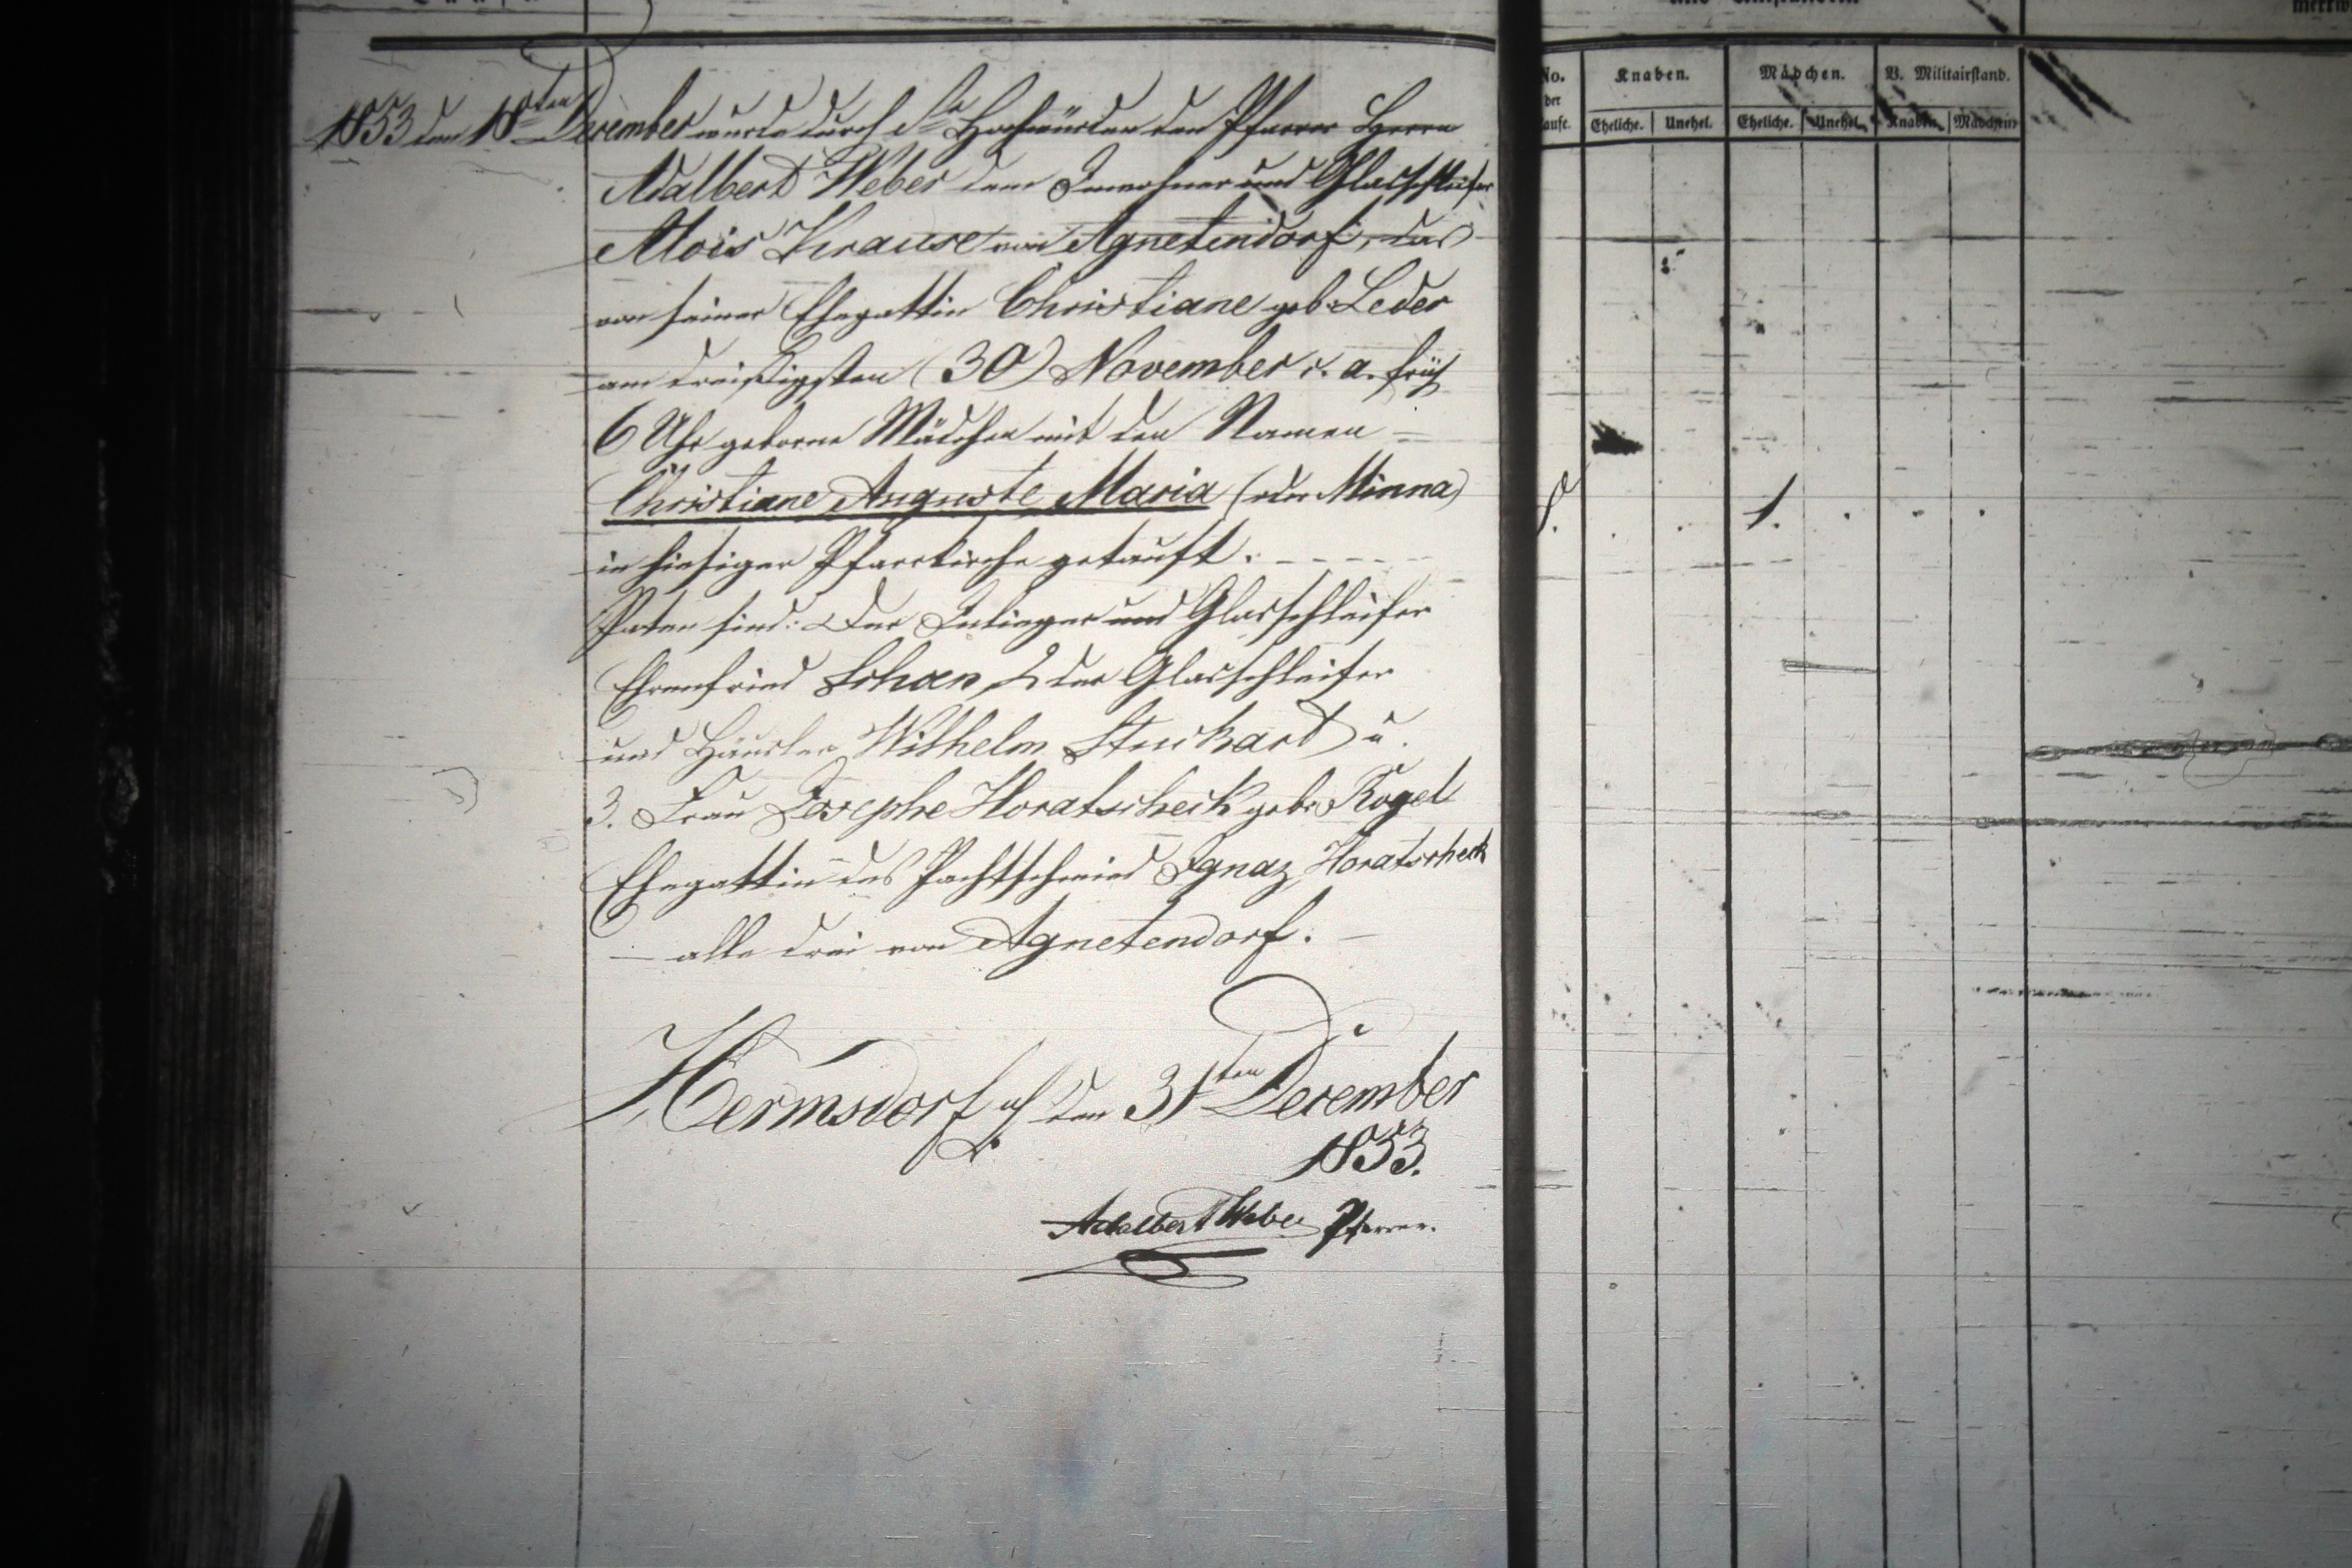 No.
der
Knaben.
Mädchen.
V. Militairstand.
Eheliche.
Unehel.
Eheliche.
Unehel.
Knaben.
Mädchen.
1853 den 18ten December wurde durch Se Hochwürden den Pfarrer Herrn
Adalbert Weber dem Inwohner und Glasschleifer
Alois Krause von Agnetendorf, das
von seiner Ehegattin Christiane geb. Leder
am dreißigsten (30) November c. a. früh
6 Uhr geborne Mädchen mit den Namen
Christiane Auguste Maria (oder Minna)
in hiesiger Pfarrkirche getauft.
Paten sind: Der Inlieger und Glasschleifer
Ehrenfried Schoen, 2 der Glasschleifer
und Häusler Wilhelm Stuckart u.
3. Frau Josephe Horatscheck geb. Kogel
Ehegattin des Pachtschmied Ignaz Horatscheck
alle drei von Agnetendorf.
8.
1.
Hermsdorf den 31ten December
1853.
Adalbert Weber Pfarrer.